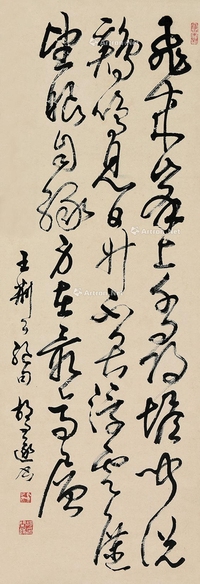 飛来峯上千尋塔聞說
鷄鳴見日升不畏浮雲遮
望眼自緣身在最高層
王荆公絶句 胡問遂書